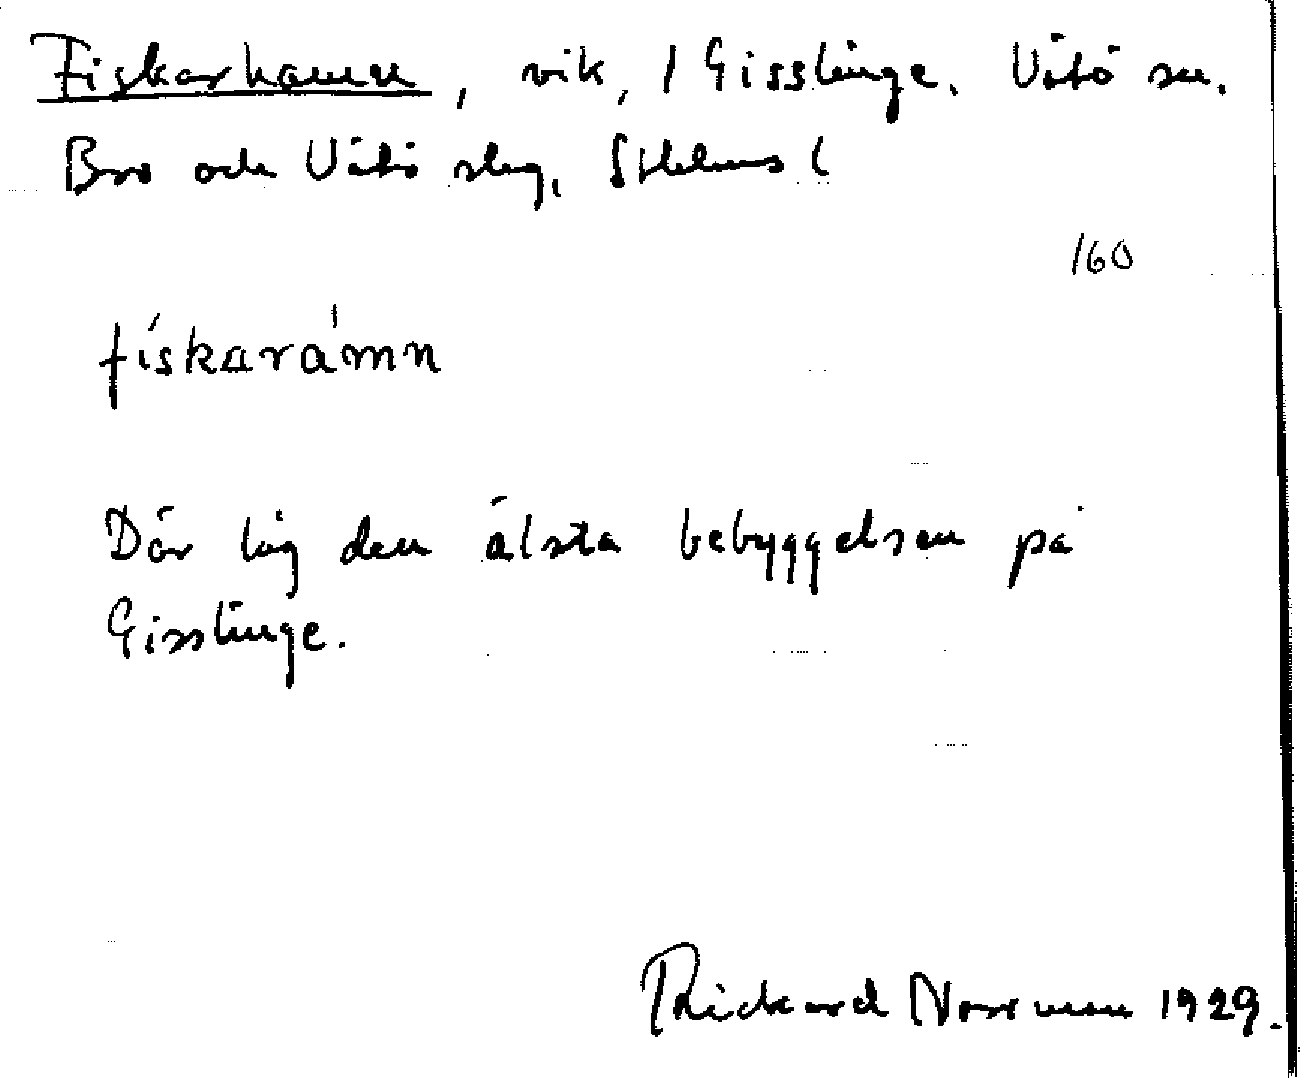 Fiskarhamn, vik, / Gisslinge. Vätö sn.
Bro och Vätö skg, Sthlms l
160
fískarámn
Där låg den älsta bebyggelsen på
Gisslinge.
Rickard Norrman 1929.